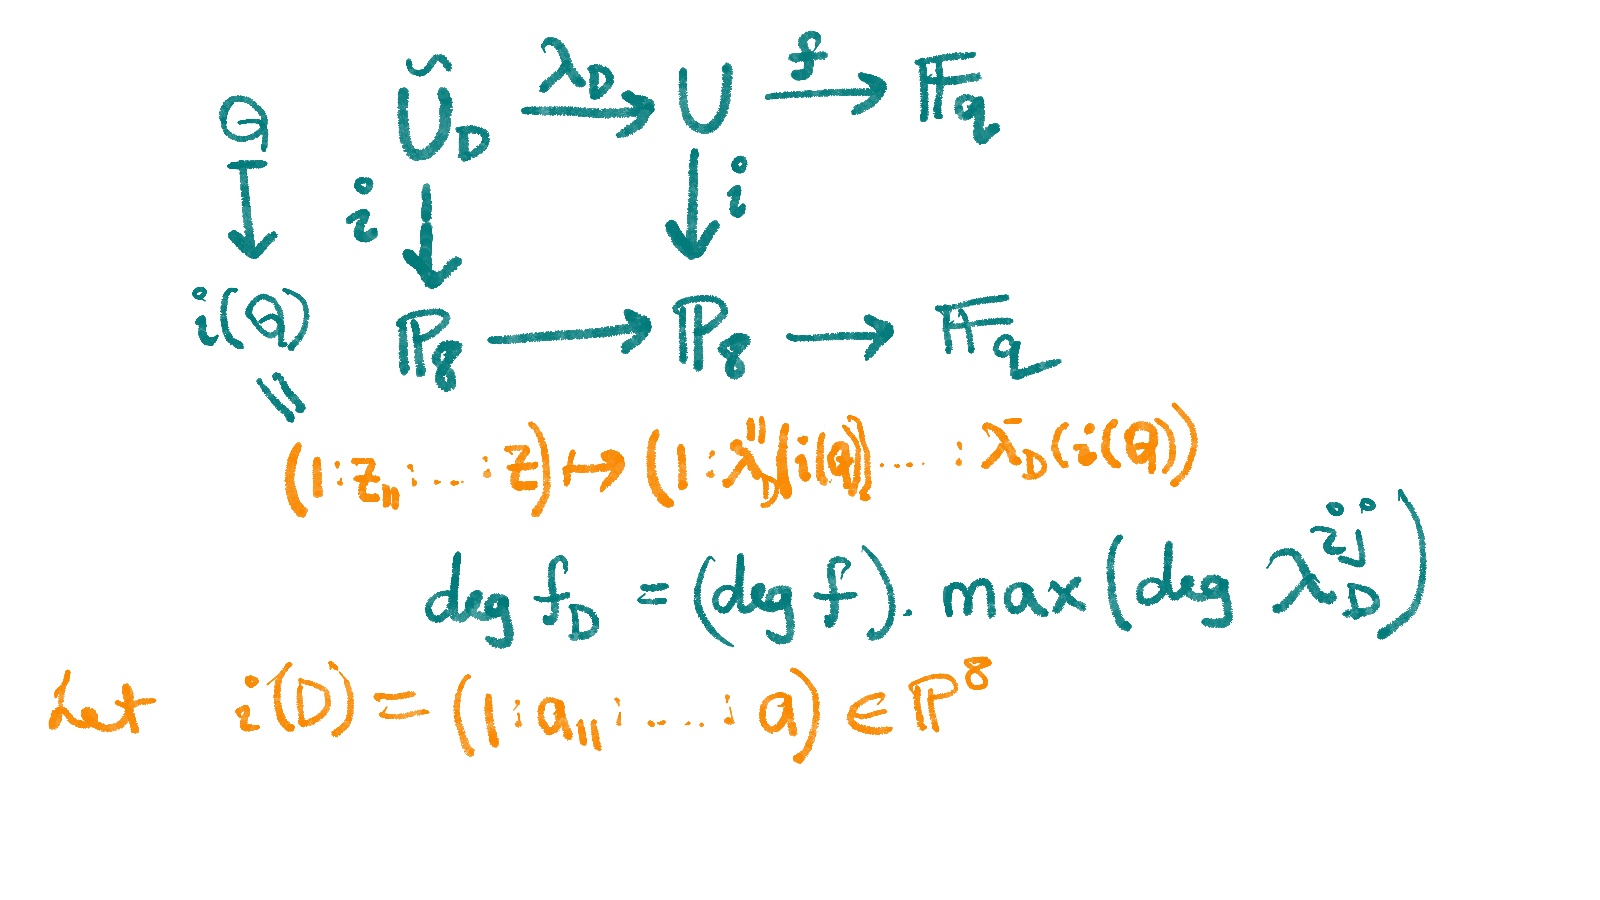 Q Ũ_D λ_D → U f → 𝔽_q
↓ i ↓ ↓ i
i(Q) ℙ_8 → ℙ_8 → 𝔽_q
||
(1 : z_11 : .... : z) ↦ (1 : λ_D^11(i(Q)) .... : λ_D(i(Q)))
deg f_D = (deg f). max (deg λ_D^ij)
Let i(D) = (1 : a_11 : ..... : a) ∈ ℙ^8